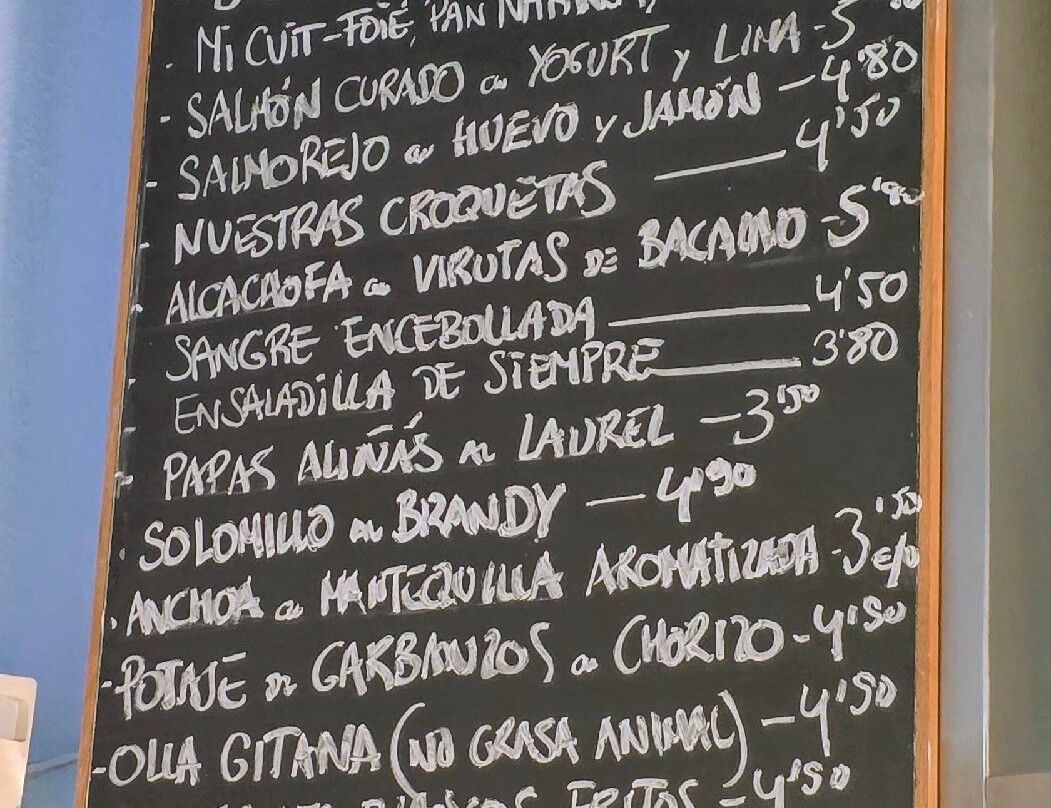 - MI CUIT-FOIE, PAN
- SALMÓN CURADO CON YOGURT Y LIMA - 5
- SALMOREJO CON HUEVO Y JAMÓN - 4'80
- NUESTRAS CROQUETAS — 4'50
- ALCACHOFA CON VIRUTAS DE BACALAO - 5'80
- SANGRE ENCEBOLLADA — 4'50
- ENSALADILLA DE SIEMPRE — 3'80
- PAPAS ALIÑÁS AL LAUREL - 3'50
- SOLOMILLO AL BRANDY - 4'90
- ANCHOA CON MANTEQUILLA AROMATIZADA - 3'50 c/u
- POTAJE DE GARBANZOS CON CHORIZO - 4'50
- OLLA GITANA (NO GRASA ANIMAL) - 4'50
FRITOS - 4'50